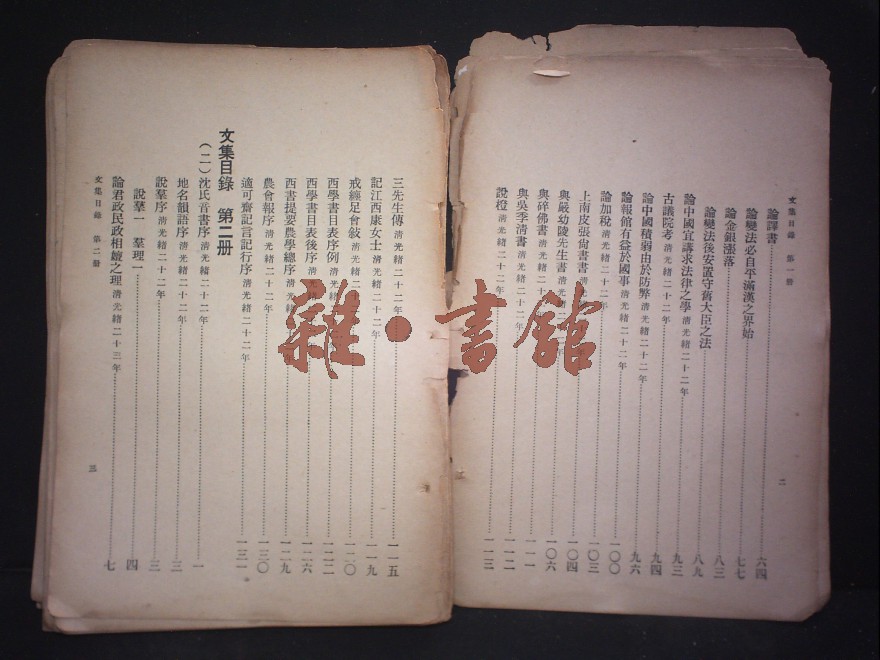 文集目錄 第一册
二
論譯書 六四
論變法必自平滿漢之界始 七七
論金銀漲落 八三
論變法後安置守舊大臣之法 八九
論中國宜講求法律之學 清光緒二十二年 九三
古議院考 清光緒二十二年 九四
論中國積弱由於防弊 清光緒二十二年 九六
論報館有益於國事 清光緒二十二年 一〇〇
論加稅 清光緒二十二年 一〇三
上南皮張尙書書 清光緒二十 一〇四
與嚴幼陵先生書 清光緒二 一〇六
與碎佛書 清光緒二十二年 一一一
與吳季清書 清光緒二十二年 一一二
說橙 清光緒二十二年 一一三
三先生傳 清光緒二十二年 一一五
記江西康女士 清光緒二十二年 一一九
戒纏足會敍 清光緒二十二年 一二〇
西學書目表序例 清光緒二 一二二
西學書目表後序 清光緒 一二六
西書提要農學總序 清光緒二十二年 一二九
農會報序 清光緒二十二年 一三〇
適可齋記言記行序 清光緒二十二年 一三一
文集目錄 第二册
(二)沈氏音書序 清光緒二十二年 一
地名韻語序 清光緒二十二年 三
說羣序 清光緒二十二年 三
說羣一 羣理一 四
論君政民政相嬗之理 清光緒二十三年 七
文集目錄 第二册
三
雜·書館